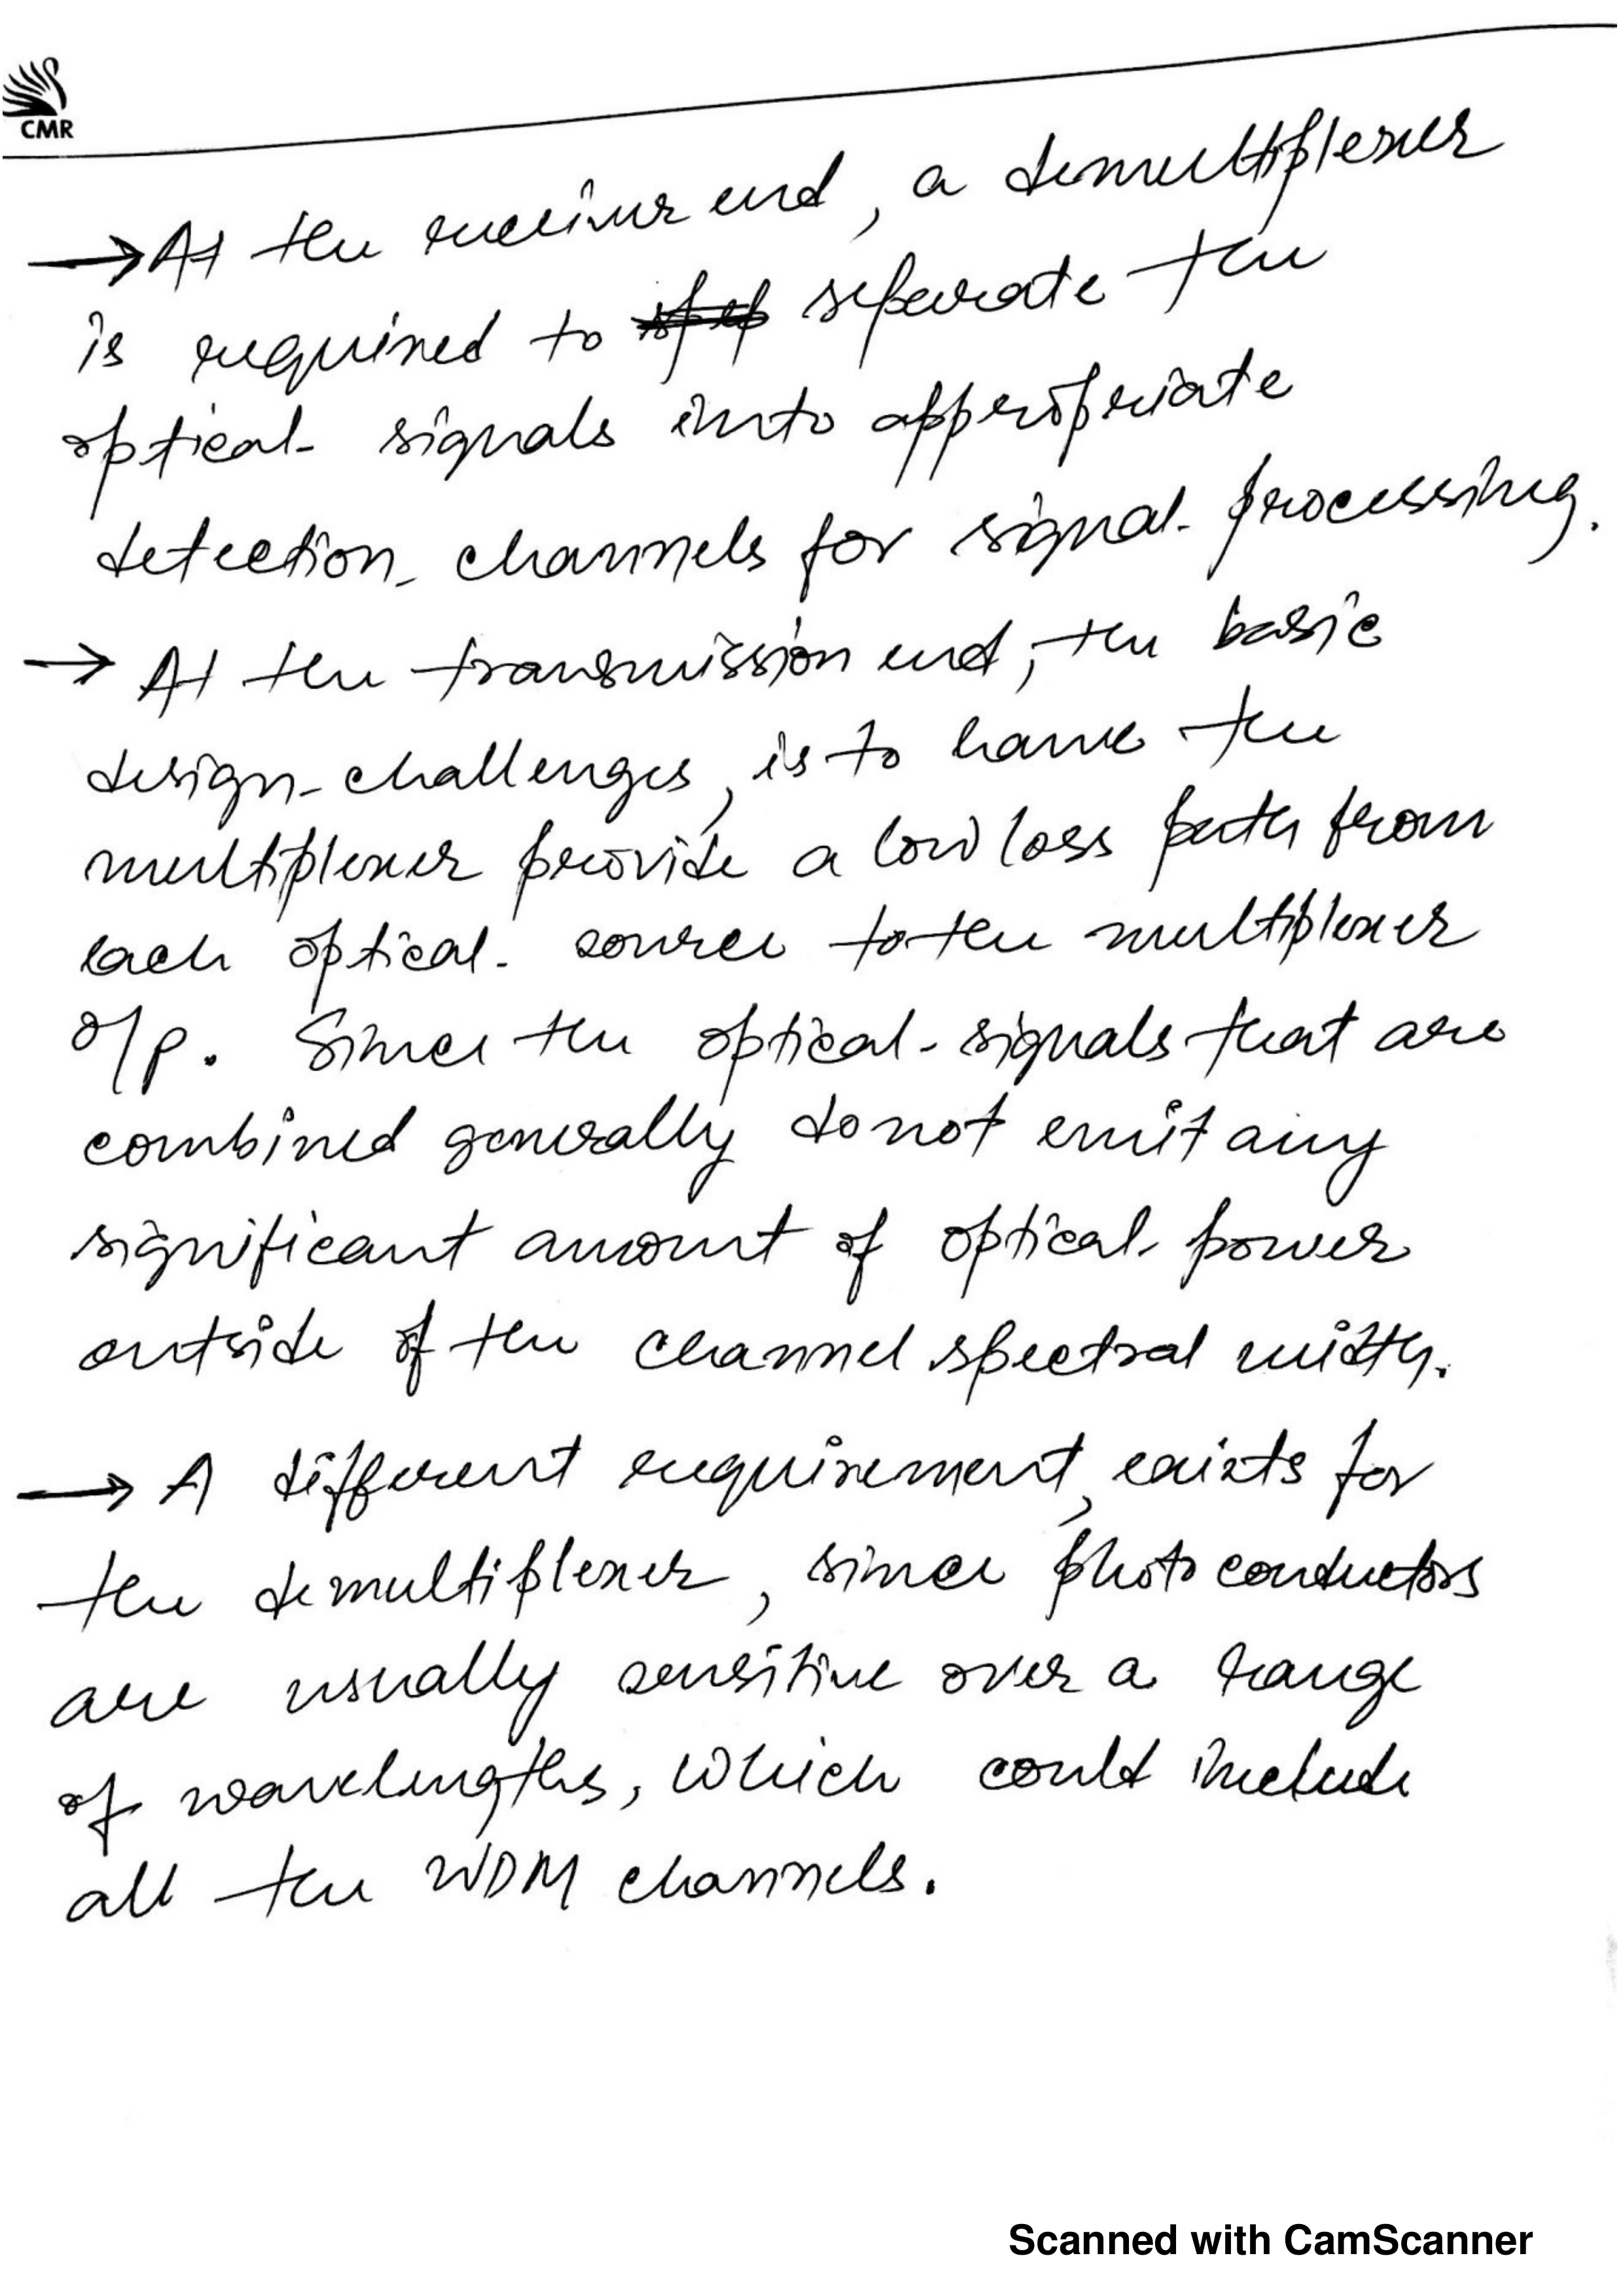 CMR
→ At the receiver end, a demultiplexer
is required to separate the
optical signals into appropriate
detection channels for signal processing.
→ At the transmission end, the basic
design challenges, is to have the
multiplexer provide a low loss path from
each optical source to the multiplexer
o/p. Since the optical signals that are
combined generally do not emit any
significant amount of optical power
outside of the channel spectral width.
→ A different requirement, exists for
the demultiplexer, since photo conductors
are usually sensitive over a range
of wavelengths, which could include
all the WDM channels.
Scanned with CamScanner